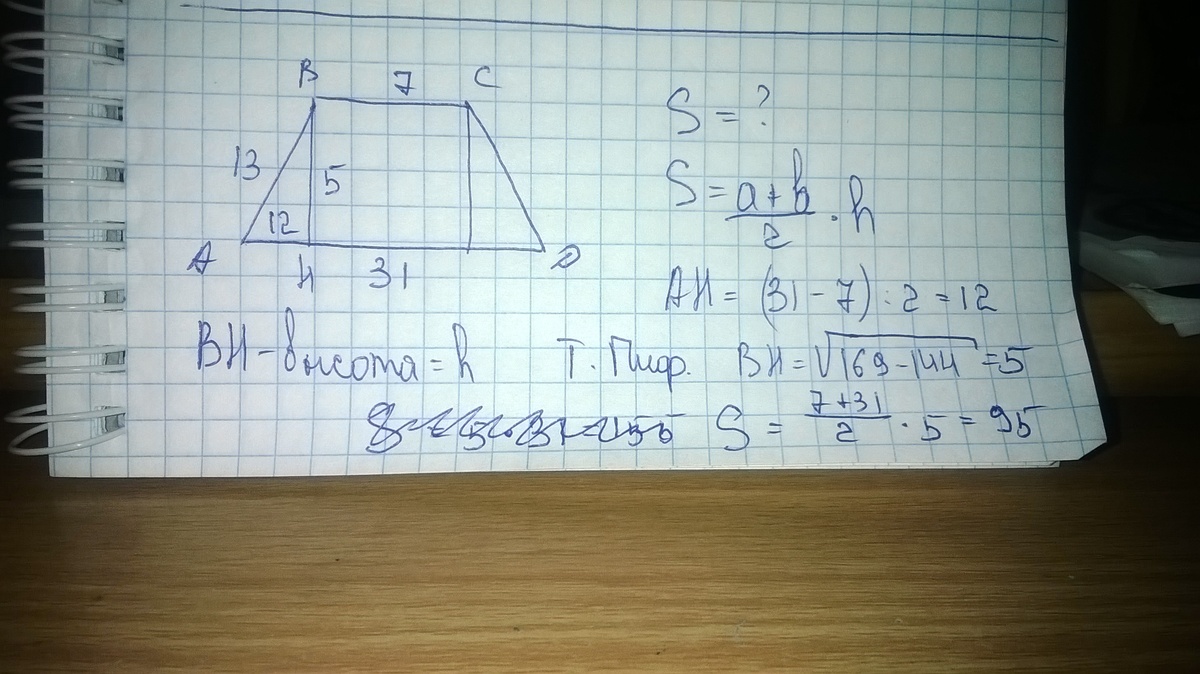 B 7 C
13 5
12
A H 31 D
S = ?
S = a+b/2 · h
AH = (31 - 7) : 2 = 12
BH - высота = h Т. Пиф. BH = √169 - 144 = 5
S = 7+31/2 · 5 = 95